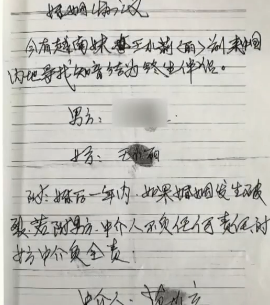 婚姻协议
今有越南妹王小莉〈丽〉前来中国
内地寻找知音结为终生伴侣。
男方：
女方：王小丽
附：婚后一年内，如果婚姻发生破
裂，若附男方，中介人不负任何责任，附
女方中介负全责
中介人：